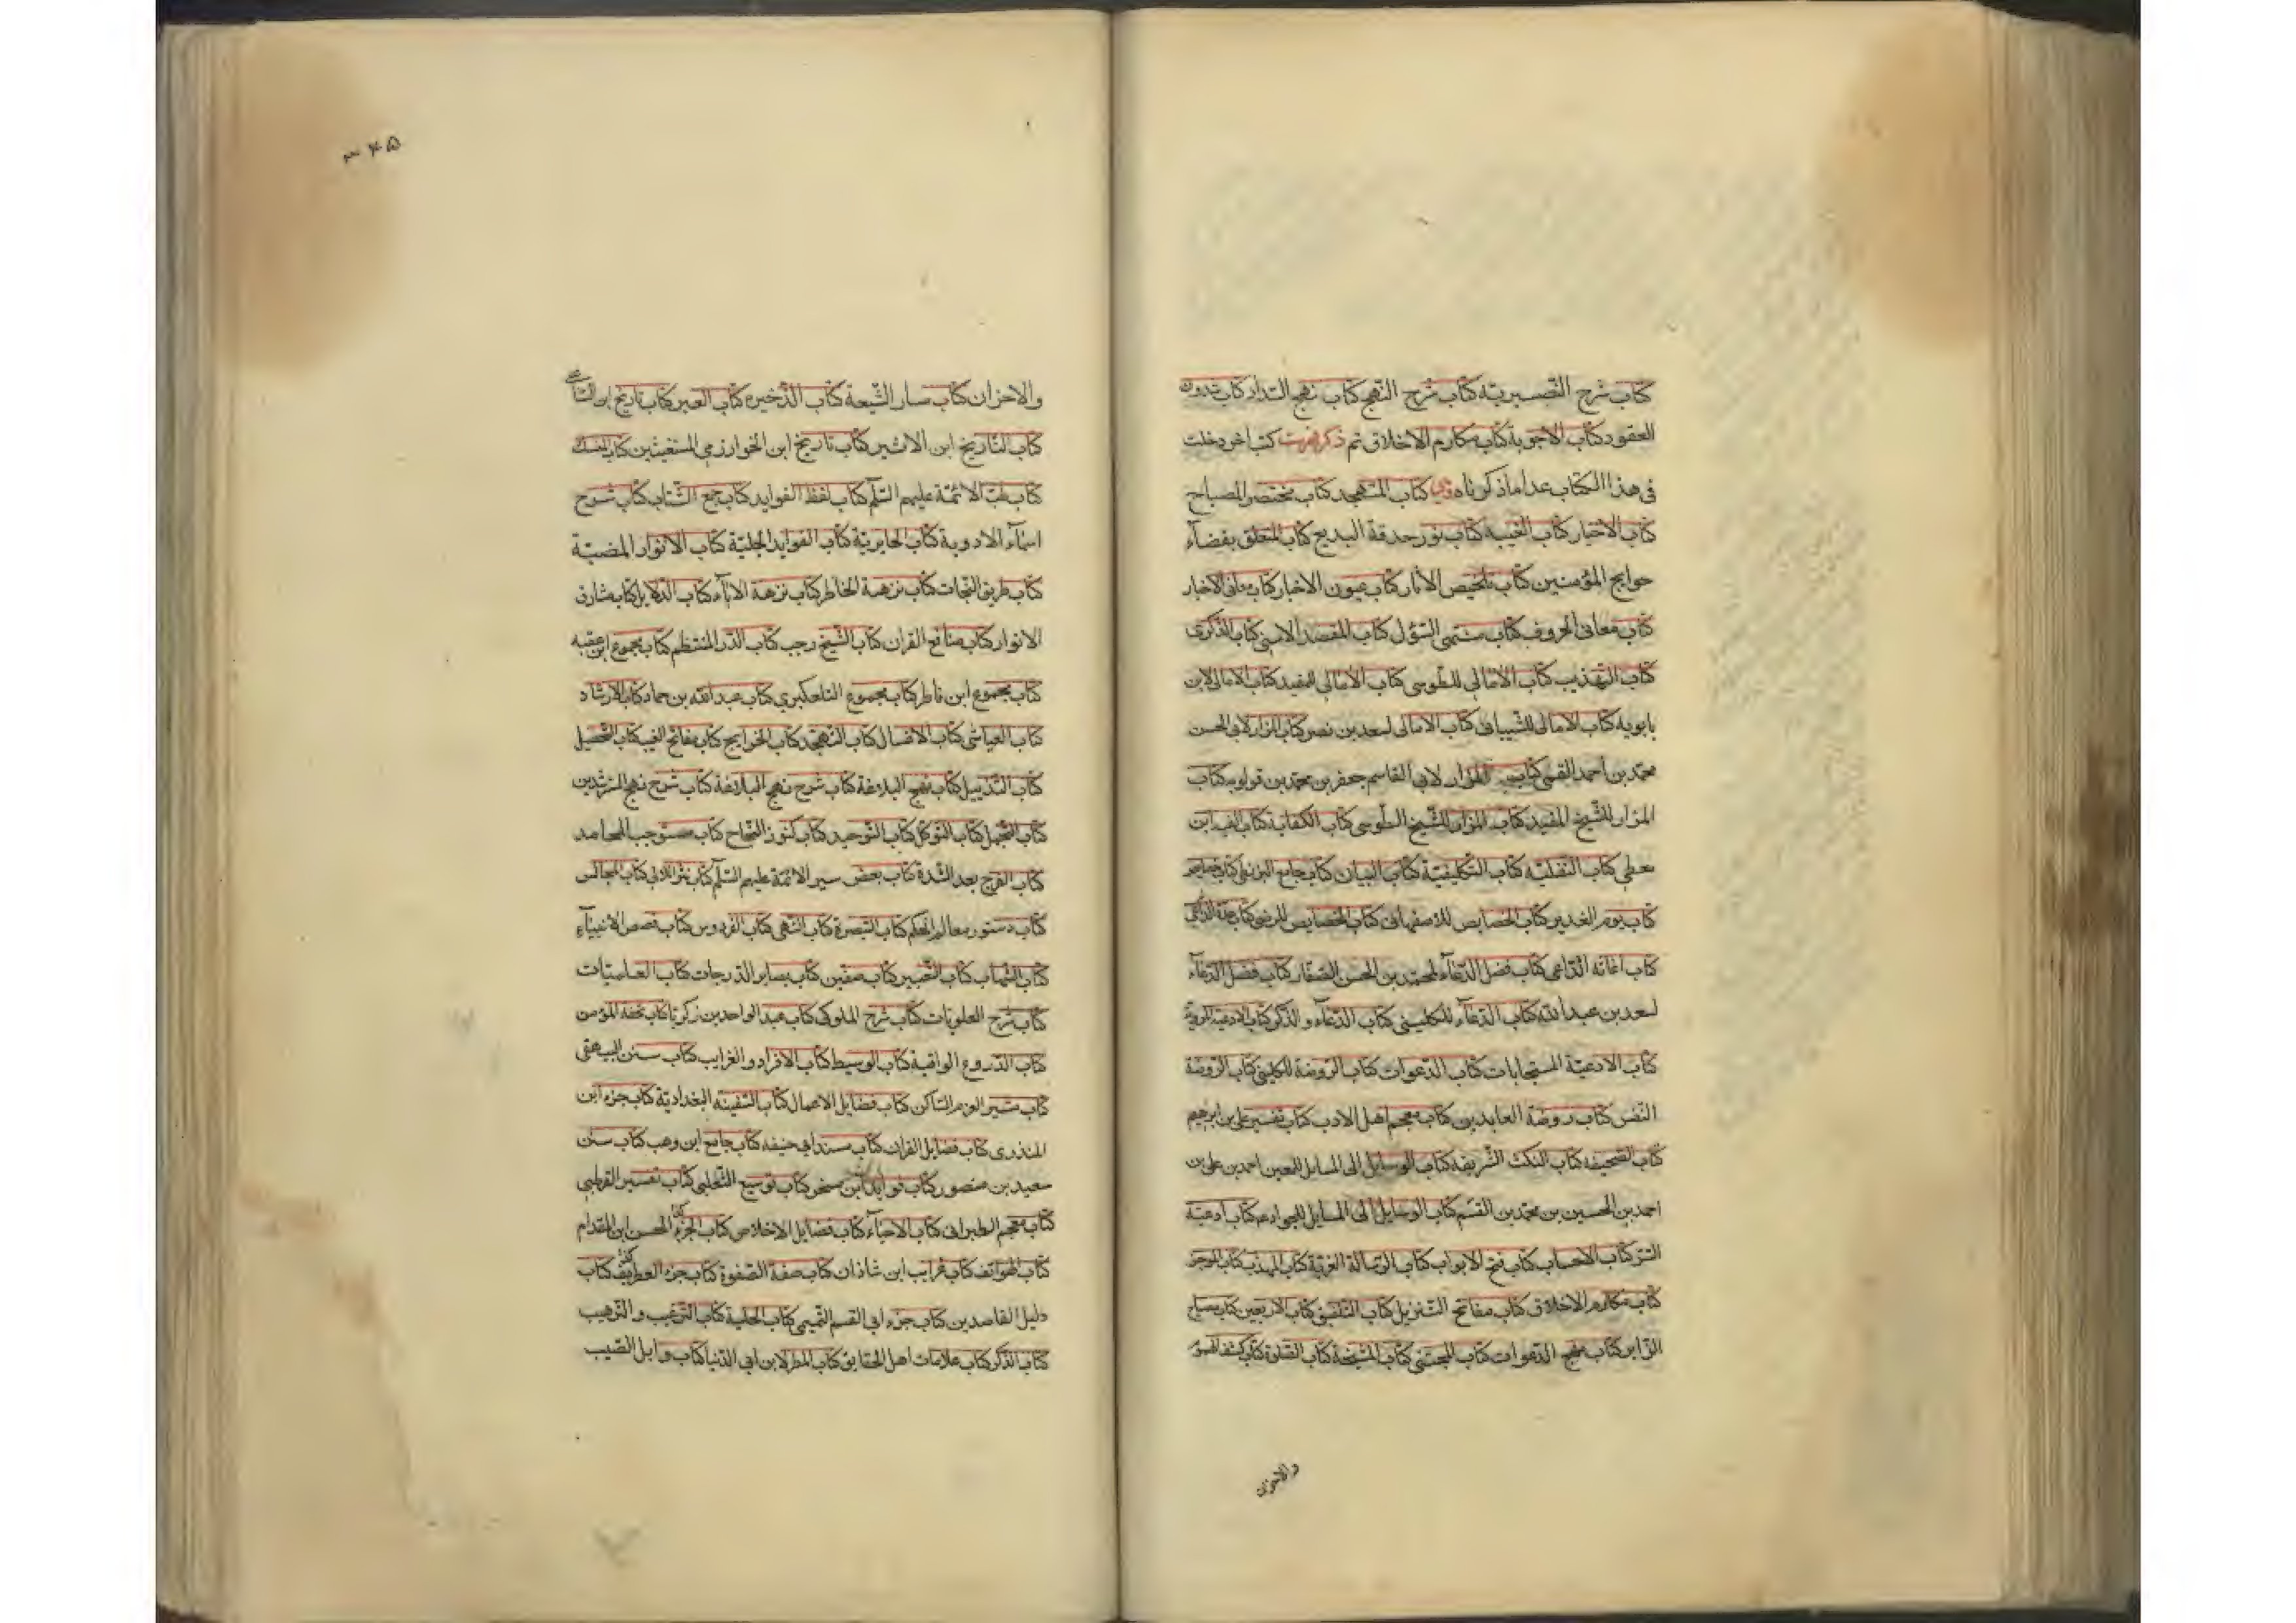 كتاب شرح النصيرية كتاب شرح النهج كتاب نهج السداد كتاب
العقود كتاب الاجوبة كتاب مكارم الاخلاق تم ذكر كتب اخر دخلت
فى هذا الكتاب عدا ما ذكرناه كتاب المتهجد كتاب مختصر المصباح
كتاب الاخبار كتاب الغيبه كتاب نور حدقة البديع كتاب المتعلق بقضآء
حوايج المؤمنين كتاب تلخيص الاثار كتاب عيون الاخبار كتاب معانى الاخبار
كتاب معانى الحروف كتاب منتهى السؤل كتاب المقصد الاسنى كتاب الذكرى
كتاب التهذيب كتاب الامالى للطوسى كتاب الامالى للمفيد كتاب الامالى لابن
بابويه كتاب الامالى للشيبانى كتاب الامالى لسعد بن نصر كتاب المزار لابى الحسن
محمد بن احمد القمى كتاب المزار لابى القاسم جعفر بن محمد بن قولويه كتاب
المزار للشيخ المفيد كتاب المزار للشيخ الطوسى كتاب الكفاية كتاب الفيه ابن
معطى كتاب النفليه كتاب التكليفية كتاب البيان كتاب جامع البزنطى كتاب
كتاب يوم الغدير كتاب الخصايص للاصفهانى كتاب الخصايص للرضى كتاب عدة الداعى
كتاب اغاثه الداعى كتاب فضل الدعآء لمحمد بن الحسن الصفار كتاب فضل الدعآء
لسعد بن عبد الله كتاب الدعآء للكلينى كتاب الدعآء و الذكر كتاب الادعية المروية
كتاب الادعية المستجابات كتاب الدعوات كتاب الروضة للكلينى كتاب الروضة
النفس كتاب روضة العابدين كتاب معجم اهل الادب كتاب تفسير على بن ابرهيم
كتاب الصحيفه كتاب النكت الشريفه كتاب الوسايل الى المسايل للمعين احمد بن على بن
احمد بن الحسين بن محمد بن القسم كتاب الوسايل الى المسايل للجواد ع كتاب ادعية
السر كتاب الاحساب كتاب فتح الابواب كتاب الرسالة الغرية كتاب المهذب كتاب الموجز
كتاب مكارم الاخلاق كتاب مفاتح التنزيل كتاب التلفيق كتاب الاربعين كتاب مصباح
الزاير كتاب مهج الدعوات كتاب المجتنى كتاب المشيخة كتاب الصلوة كتاب كشف الهموم
والاحزان
٣۴۵
والاحزان كتاب مسار الشيعة كتاب الذخيره كتاب العبر كتاب تاريخ ابن الساعى
كتاب التاريخ ابن الاثير كتاب تاريخ ابن الخوارزمى المستغيثين كتاب المنسك
كتاب طب الائمة عليهم السلم كتاب لفظ الفوايد كتاب جمع الشتات كتاب شرح
اسمآء الادوية كتاب الحايرية كتاب الفوايد الجلية كتاب الانوار المضيئة
كتاب طريق النجات كتاب نزهة الخاطر كتاب نزهة الادباء كتاب الدلايل كتاب مشارق
الانوار كتاب منافع القران كتاب الشيخ رجب كتاب الدر المنتظم كتاب مجموع ابن عقبه
كتاب مجموع ابن فاطر كتاب مجموع التلعكبري كتاب عبد الله بن حماد كتاب الارشاد
كتاب العياشى كتاب الاغسال كتاب التهجد كتاب الخرايج كتاب مفاتح الغيب كتاب التحصيل
كتاب التذييل كتاب نهج البلاغة كتاب شرح نهج البلاغة كتاب شرح نهج المسترشدين
كتاب التجمل كتاب التوكل كتاب التوحيد كتاب كنوز النجاح كتاب مستوجب المحامد
كتاب الفرج بعد الشدة كتاب بعض سير الائمة عليهم السلم كتاب نثر اللالى كتاب المجالس
كتاب دستور معالم الحكم كتاب التبصرة كتاب النهى كتاب الفردوس كتاب قصص الانبيآء
كتاب الشهاب كتاب التعبير كتاب صفين كتاب بصاير الدرجات كتاب العلميات
كتاب شرح العلويات كتاب شرح الملوكى كتاب عبد الواحد بن زكريا كتاب تحفة المؤمن
كتاب الدروع الواقية كتاب الوسيط كتاب الافراد و الغرايب كتاب سنن البيهقى
كتاب مثير العزم الساكن كتاب فضايل الاعمال كتاب السفينه البغدادية كتاب جزء ابن
المنذرى كتاب فضايل القران كتاب مسند ابى حنيفه كتاب جامع ابن وهب كتاب سنن
سعيد بن منصور كتاب فوايد ابن صخر كتاب توسيع الثعلبى كتاب تفسير القرطبى
كتاب معجم الطبرانى كتاب الاحيآء كتاب فضايل الاخلاص كتاب الجزء الحسن ابن المقدام
كتاب الهواتف كتاب غرايب ابن شاذان كتاب صفة الصفوة كتاب جزء العطريف كتاب
دليل القاصدين كتاب جزء ابى القسم التميمى كتاب الحلية كتاب الترغيب و الترهيب
كتاب الذكر كتاب علامات اهل الحقايق كتاب المطر لابن ابى الدنيا كتاب وابل الصيب